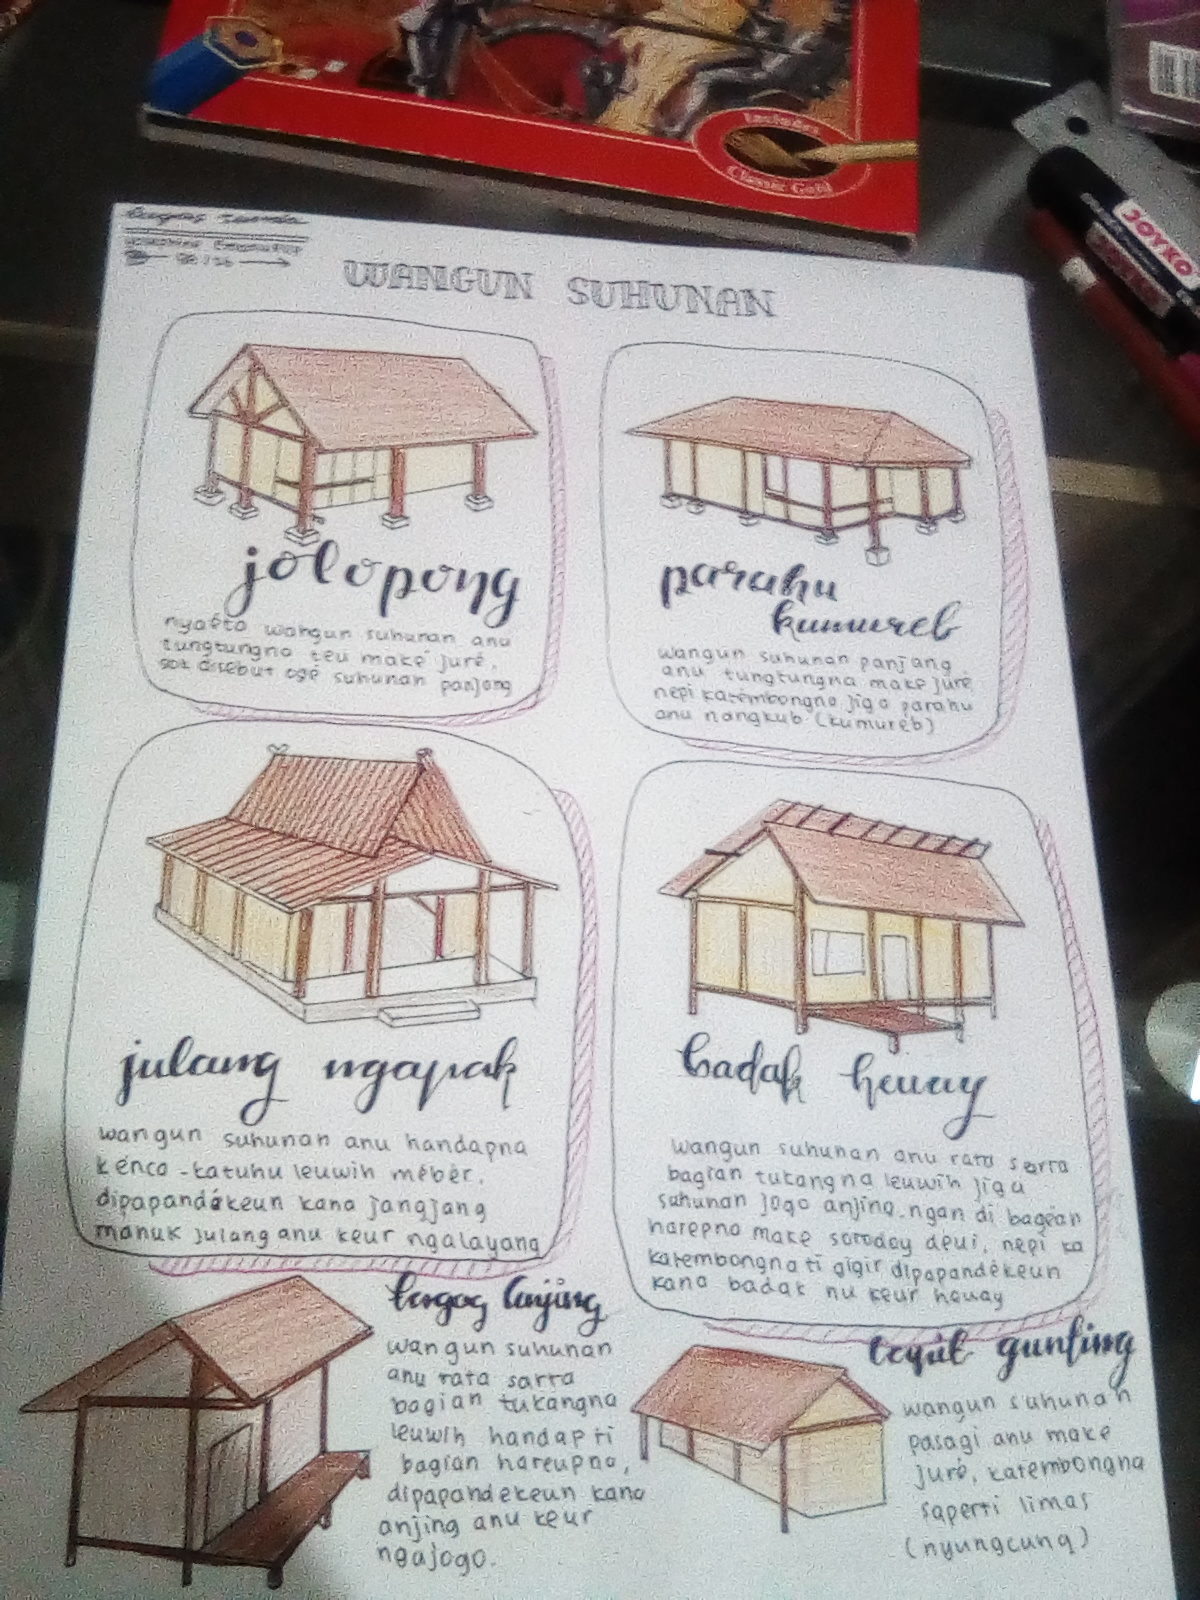 Includes
Classic Gold
JOYKO
tugas sunda
WANGUN SUHUNAN
jolopong
nyaéta wangun suhunan anu
tungtungna teu maké juré,
sok disebut ogé suhunan panjang
parahu
kumureb
wangun suhunan panjang
anu tungtungna make juré
nepi katembongna jiga parahu
anu nangkub (kumureb)
julang ngapak
wangun suhunan anu handapna
kénca-katuhu leuwih mébér.
dipapandékeun kana jangjang
manuk julang anu keur ngalayang
badak heuay
wangun suhunan anu rata sarra
bagian tukangna leuwih jiga
suhunan jogo anjing. ngan di bagéan
harepna make soroday deui, nepi ka
katembongna ti gigir dipapandékeun
kana badak nu keur heuay
togog anjing
wangun suhunan
anu rata sarra
bagian tukangna
leuwih handap ti
bagian hareupna,
dipapandekeun kana
anjing anu keur
ngajogo.
gunting
wangun suhunan
pasagi anu make
juré, katembongna
saperti limas
(nyungcung)